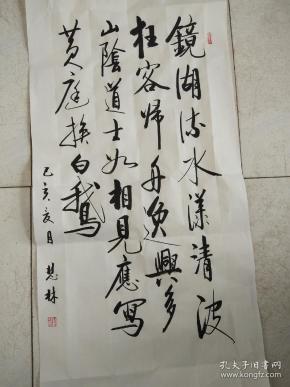 鏡湖流水漾清波
狂客歸舟逸興多
山陰道士如相見應寫
黃庭換白鵝
己亥夏月 慧林
孔夫子旧书网